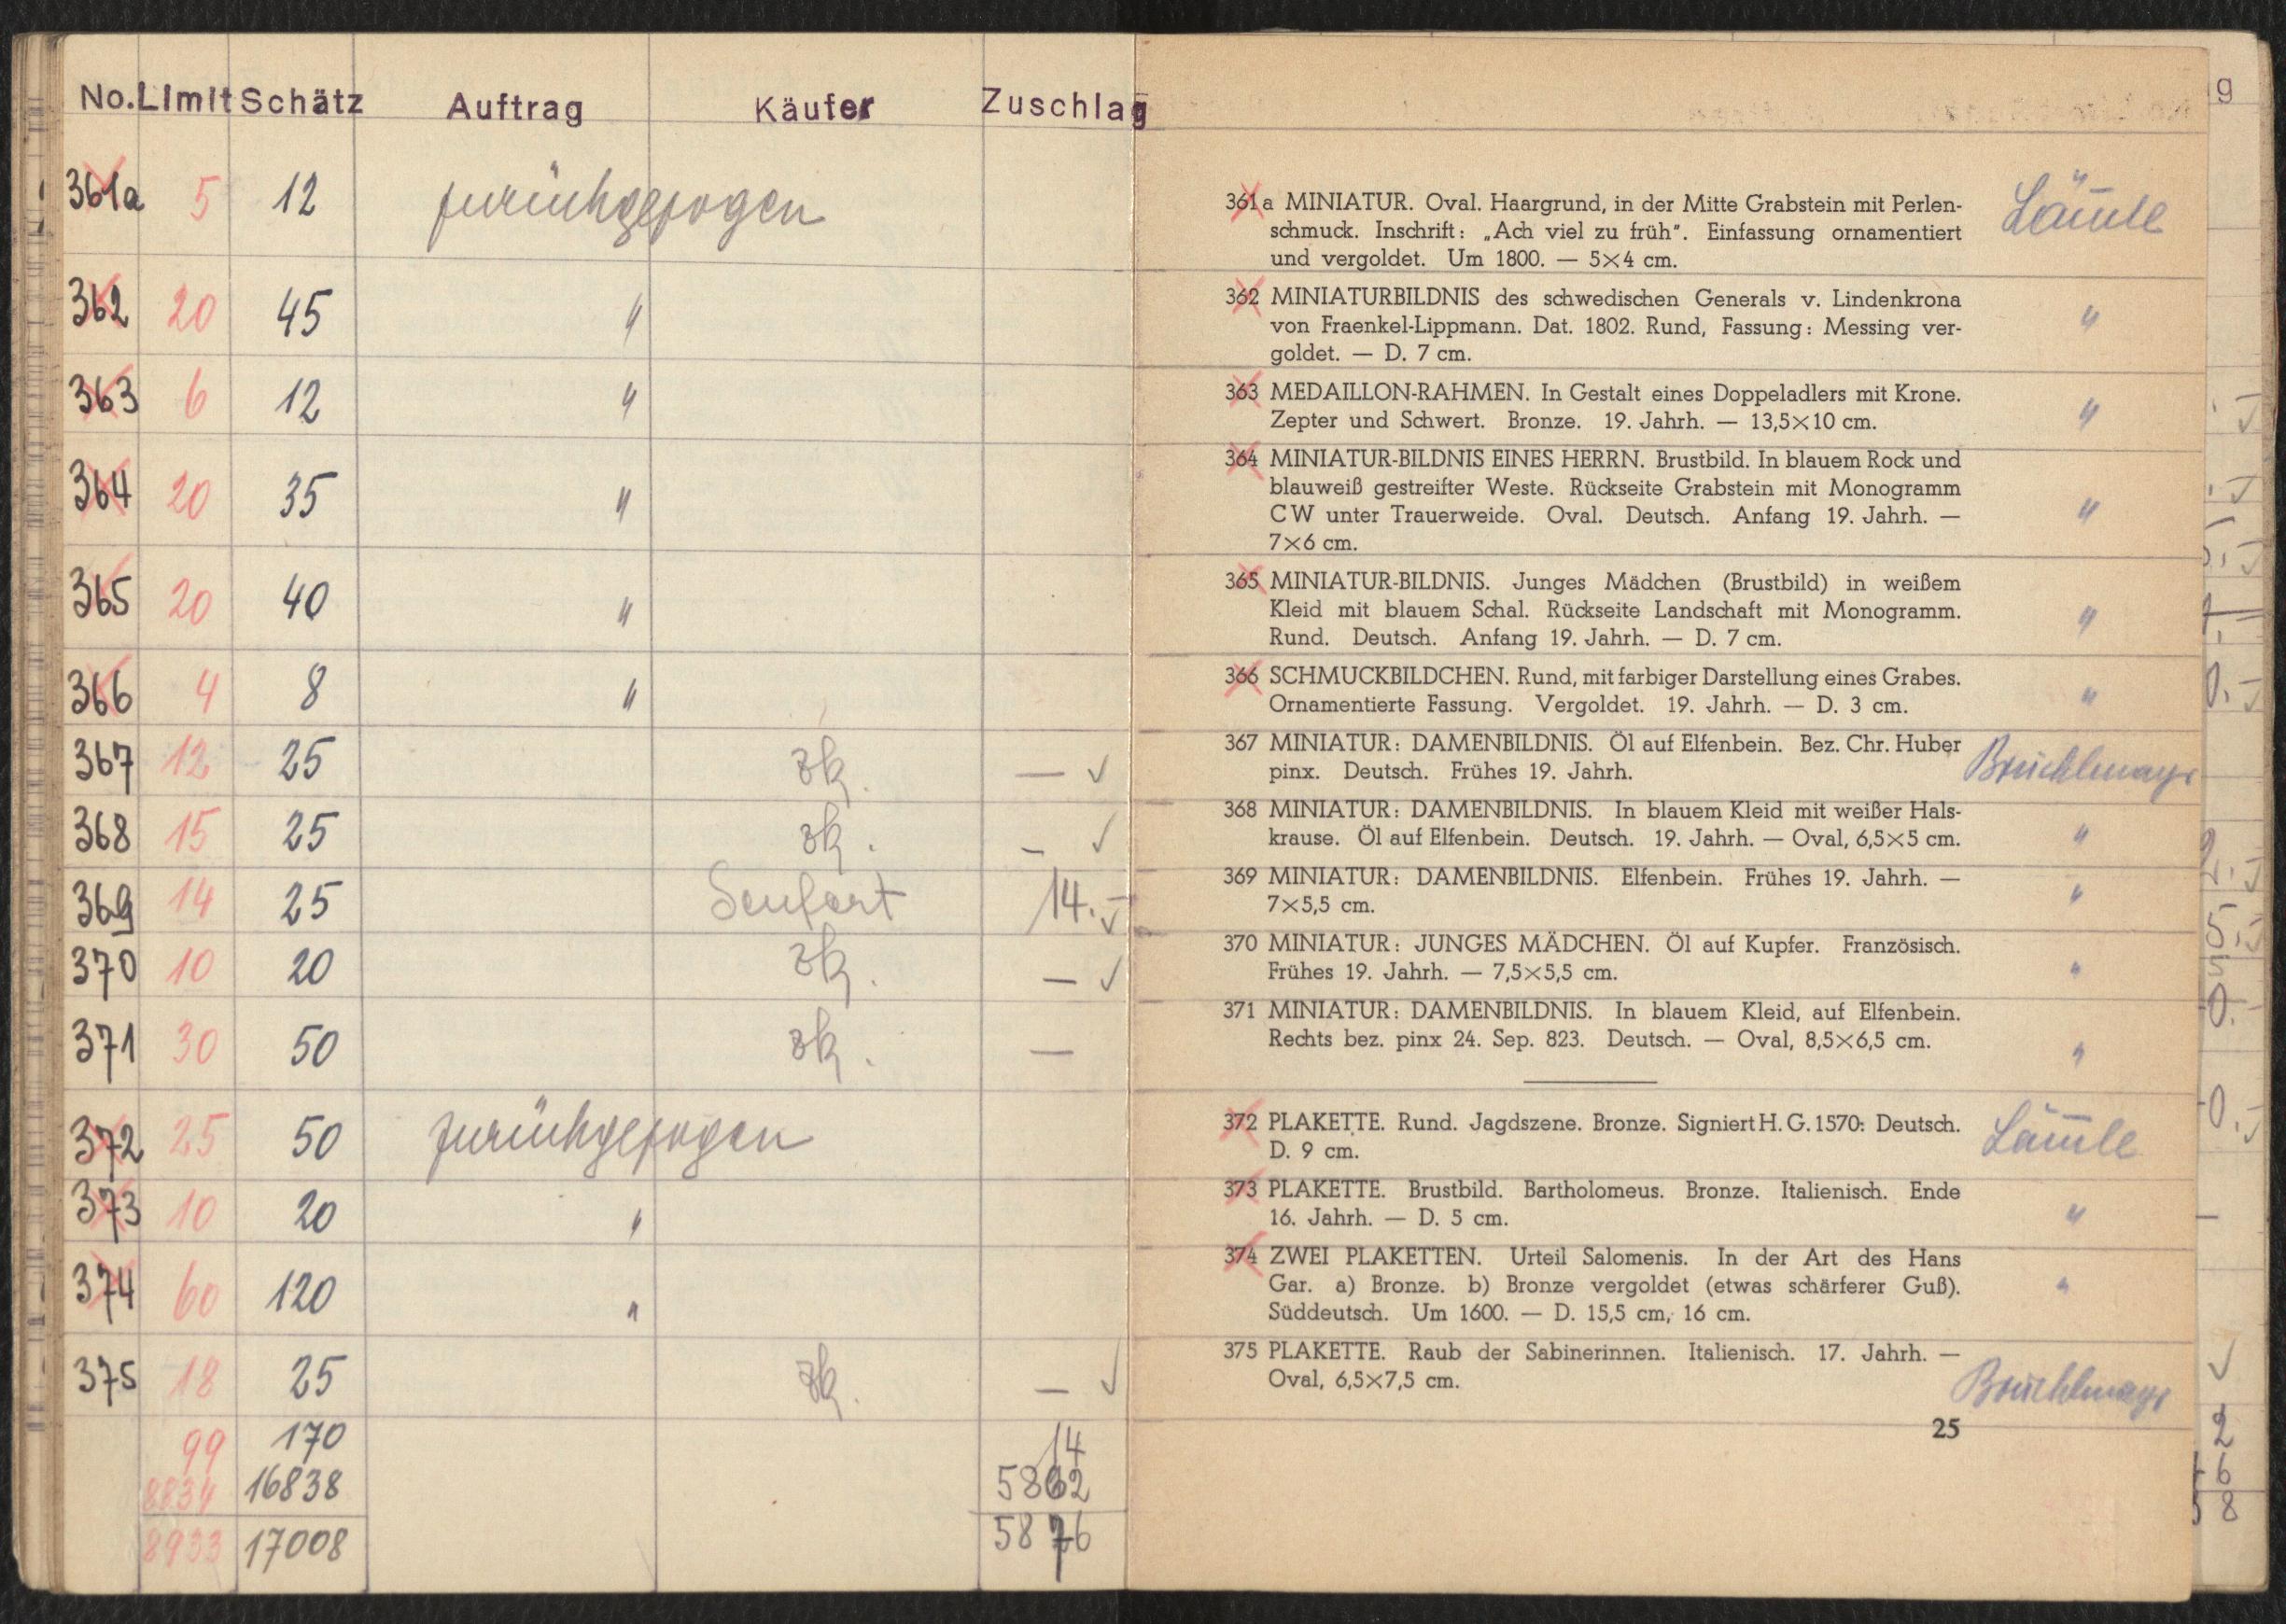 No. Limit Schätz Auftrag Käufer Zuschlag
361a 5 12 zurückgezogen
362 20 45 "
363 6 12 "
364 20 35 "
365 20 40 "
366 4 8 "
367 12 25 zk. — ✓
368 15 25 zk. — ✓
369 14 25 Seufert 14.— ✓
370 10 20 zk. — ✓
371 30 50 zk. —
372 25 50 zurückgezogen
373 10 20 "
374 60 120 "
375 18 25 zk. — ✓
99 170 14
8834 16838 5862
8933 17008 5876
361a MINIATUR. Oval. Haargrund, in der Mitte Grabstein mit Perlen- Lämle
schmuck. Inschrift: „Ach viel zu früh". Einfassung ornamentiert
und vergoldet. Um 1800. — 5×4 cm.
362 MINIATURBILDNIS des schwedischen Generals v. Lindenkrona
von Fraenkel-Lippmann. Dat. 1802. Rund, Fassung: Messing ver- "
goldet. — D. 7 cm.
363 MEDAILLON-RAHMEN. In Gestalt eines Doppeladlers mit Krone.
Zepter und Schwert. Bronze. 19. Jahrh. — 13,5×10 cm. "
364 MINIATUR-BILDNIS EINES HERRN. Brustbild. In blauem Rock und
blauweiß gestreifter Weste. Rückseite Grabstein mit Monogramm
CW unter Trauerweide. Oval. Deutsch. Anfang 19. Jahrh. — "
7×6 cm.
365 MINIATUR-BILDNIS. Junges Mädchen (Brustbild) in weißem
Kleid mit blauem Schal. Rückseite Landschaft mit Monogramm. "
Rund. Deutsch. Anfang 19. Jahrh. — D. 7 cm.
366 SCHMUCKBILDCHEN. Rund, mit farbiger Darstellung eines Grabes.
Ornamentierte Fassung. Vergoldet. 19. Jahrh. — D. 3 cm. "
367 MINIATUR: DAMENBILDNIS. Öl auf Elfenbein. Bez. Chr. Huber
pinx. Deutsch. Frühes 19. Jahrh.
368 MINIATUR: DAMENBILDNIS. In blauem Kleid mit weißer Hals-
krause. Öl auf Elfenbein. Deutsch. 19. Jahrh. — Oval, 6,5×5 cm. "
369 MINIATUR: DAMENBILDNIS. Elfenbein. Frühes 19. Jahrh. —
7×5,5 cm. "
370 MINIATUR: JUNGES MÄDCHEN. Öl auf Kupfer. Französisch.
Frühes 19. Jahrh. — 7,5×5,5 cm. "
371 MINIATUR: DAMENBILDNIS. In blauem Kleid, auf Elfenbein.
Rechts bez. pinx 24. Sep. 823. Deutsch. — Oval, 8,5×6,5 cm. "
372 PLAKETTE. Rund. Jagdszene. Bronze. Signiert H. G. 1570: Deutsch. Lämle
D. 9 cm.
373 PLAKETTE. Brustbild. Bartholomeus. Bronze. Italienisch. Ende
16. Jahrh. — D. 5 cm. "
374 ZWEI PLAKETTEN. Urteil Salomenis. In der Art des Hans
Gar. a) Bronze. b) Bronze vergoldet (etwas schärferer Guß). "
Süddeutsch. Um 1600. — D. 15,5 cm, 16 cm.
375 PLAKETTE. Raub der Sabinerinnen. Italienisch. 17. Jahrh. —
Oval, 6,5×7,5 cm.
25